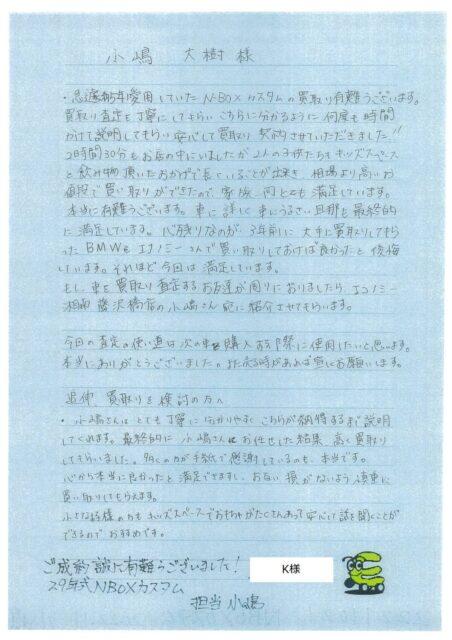 小嶋 大樹様
愛用していたN-BOXカスタムの買取り有難うございます。
買取り査定も丁寧にしてもらい こちらに分かるように 何度も 時間
かけて説明してもらい 安心して買取り 契約させていただきました!!
2時間30分もお店の中にいましたが 2人の子供たちもキッズスペース
と飲み物 頂いたおかげで長くいることが出来き 相場より高いお
値段で買い取りができたので、家族一同とても満足しています。
本当に有難うございます。車に詳しく車にうるさい旦那も最終的
に満足しています。心残りなのが、3年前に大手に買取りしてもら
ったBMWもエコノミーさんで買い取りしておけば良かったと後悔
しています。それほど今回は満足しています。
もし、車を買取り査定するお友達が周りにおりましたら、エコノミー
湘南 藤沢橋店の小嶋さん宛に紹介させてもらいます。
今回の査定の使い道は次の車を購入する際に使用したいと思います。
本当にありがとうございました。また売る時があれば宜しくお願いします。
追伸 買取りを検討の方へ
・小嶋さんはとても丁寧に分かりやすくこちらが納得するまで説明
してくれます。最終的に小嶋さんにお任せした結果 高く買取り
してもらいました。多くの方が手紙で感謝しているのも、本当です。
心から本当に良かったと満足できますし、お互い損がないよう
買い取りしてもらえます。
小さなお子様の方もキッズスペースでおもちゃがたくさんあって安心して話を聞くことが
できるのでおすすめです。
ご成約誠に有難うございました!
K様
29年式NBOXカスタム
担当 小嶋